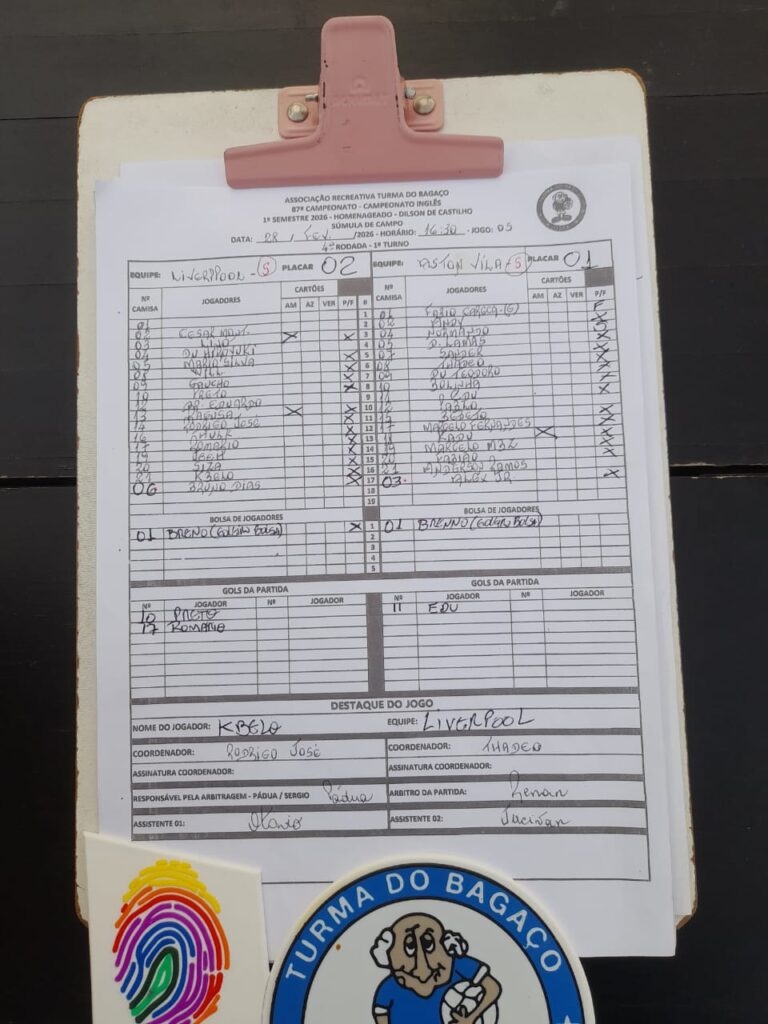 ASSOCIAÇÃO RECREATIVA TURMA DO BAGAÇO
87º CAMPEONATO - CAMPEONATO INGLÊS
1º SEMESTRE 2026 - HOMENAGEADO - DILSON DE CASTILHO
SÚMULA DE CAMPO
DATA: 28 / FEV. /2026 - HORÁRIO: 16:30 - JOGO: 05
4ª RODADA - 1º TURNO
EQUIPE: LIVERPOOL - (S) PLACAR 02 EQUIPE: ASTON VILA - (S) PLACAR 01
Nº CAMISA JOGADORES CARTÕES AM AZ VER P/F # Nº CAMISA JOGADORES CARTÕES AM AZ VER P/F
01 1 01 FABIO CAROCA-(G) F
02 CESAR MONT. X X 2 02 ANDY X
03 LINO 3 04 NORMANDO X
04 DU HIROYUKI X 4 05 D. LAMAS X
05 MARIO SILVA X 5 07 SANDER X
08 WILL X 6 08 THADEO X
09 GAUCHO X 7 09 DU TEODORO X
10 PRETO 8 10 BOLINHA X
12 EDUARDO X 9 11 EDU
13 X 10 12 PABLO
14 RODRIGO JOSÉ X 11 15 X
16 X 12 17 MARCELO FERNANDES X X
17 ROMARIO X 13 18 KADU X
19 X 14 19 MARCELO X
20 SIZA X 15 20 FABIÃO X
21 KBELO X 16 21 ANDERSON RAMOS
06 BRUNO DIAS X 17 03 ALEX JR X
18
19
BOLSA DE JOGADORES BOLSA DE JOGADORES
01 BRENO (GOLEIRO BOLSA) X 1 01 BRENNO (GOLEIRO BOLSA)
2
3
4
5
GOLS DA PARTIDA GOLS DA PARTIDA
Nº JOGADOR Nº JOGADOR Nº JOGADOR Nº JOGADOR
10 PRETO 11 EDU
17 ROMARIO
DESTAQUE DO JOGO
NOME DO JOGADOR: KBELO EQUIPE: LIVERPOOL
COORDENADOR: RODRIGO JOSÉ COORDENADOR: THADEO
ASSINATURA COORDENADOR: ASSINATURA COORDENADOR:
RESPONSÁVEL PELA ARBITRAGEM - PÁDUA / SERGIO Pádua ARBITRO DA PARTIDA: Renan
ASSISTENTE 01: ASSISTENTE 02:
TURMA DO BAGAÇO